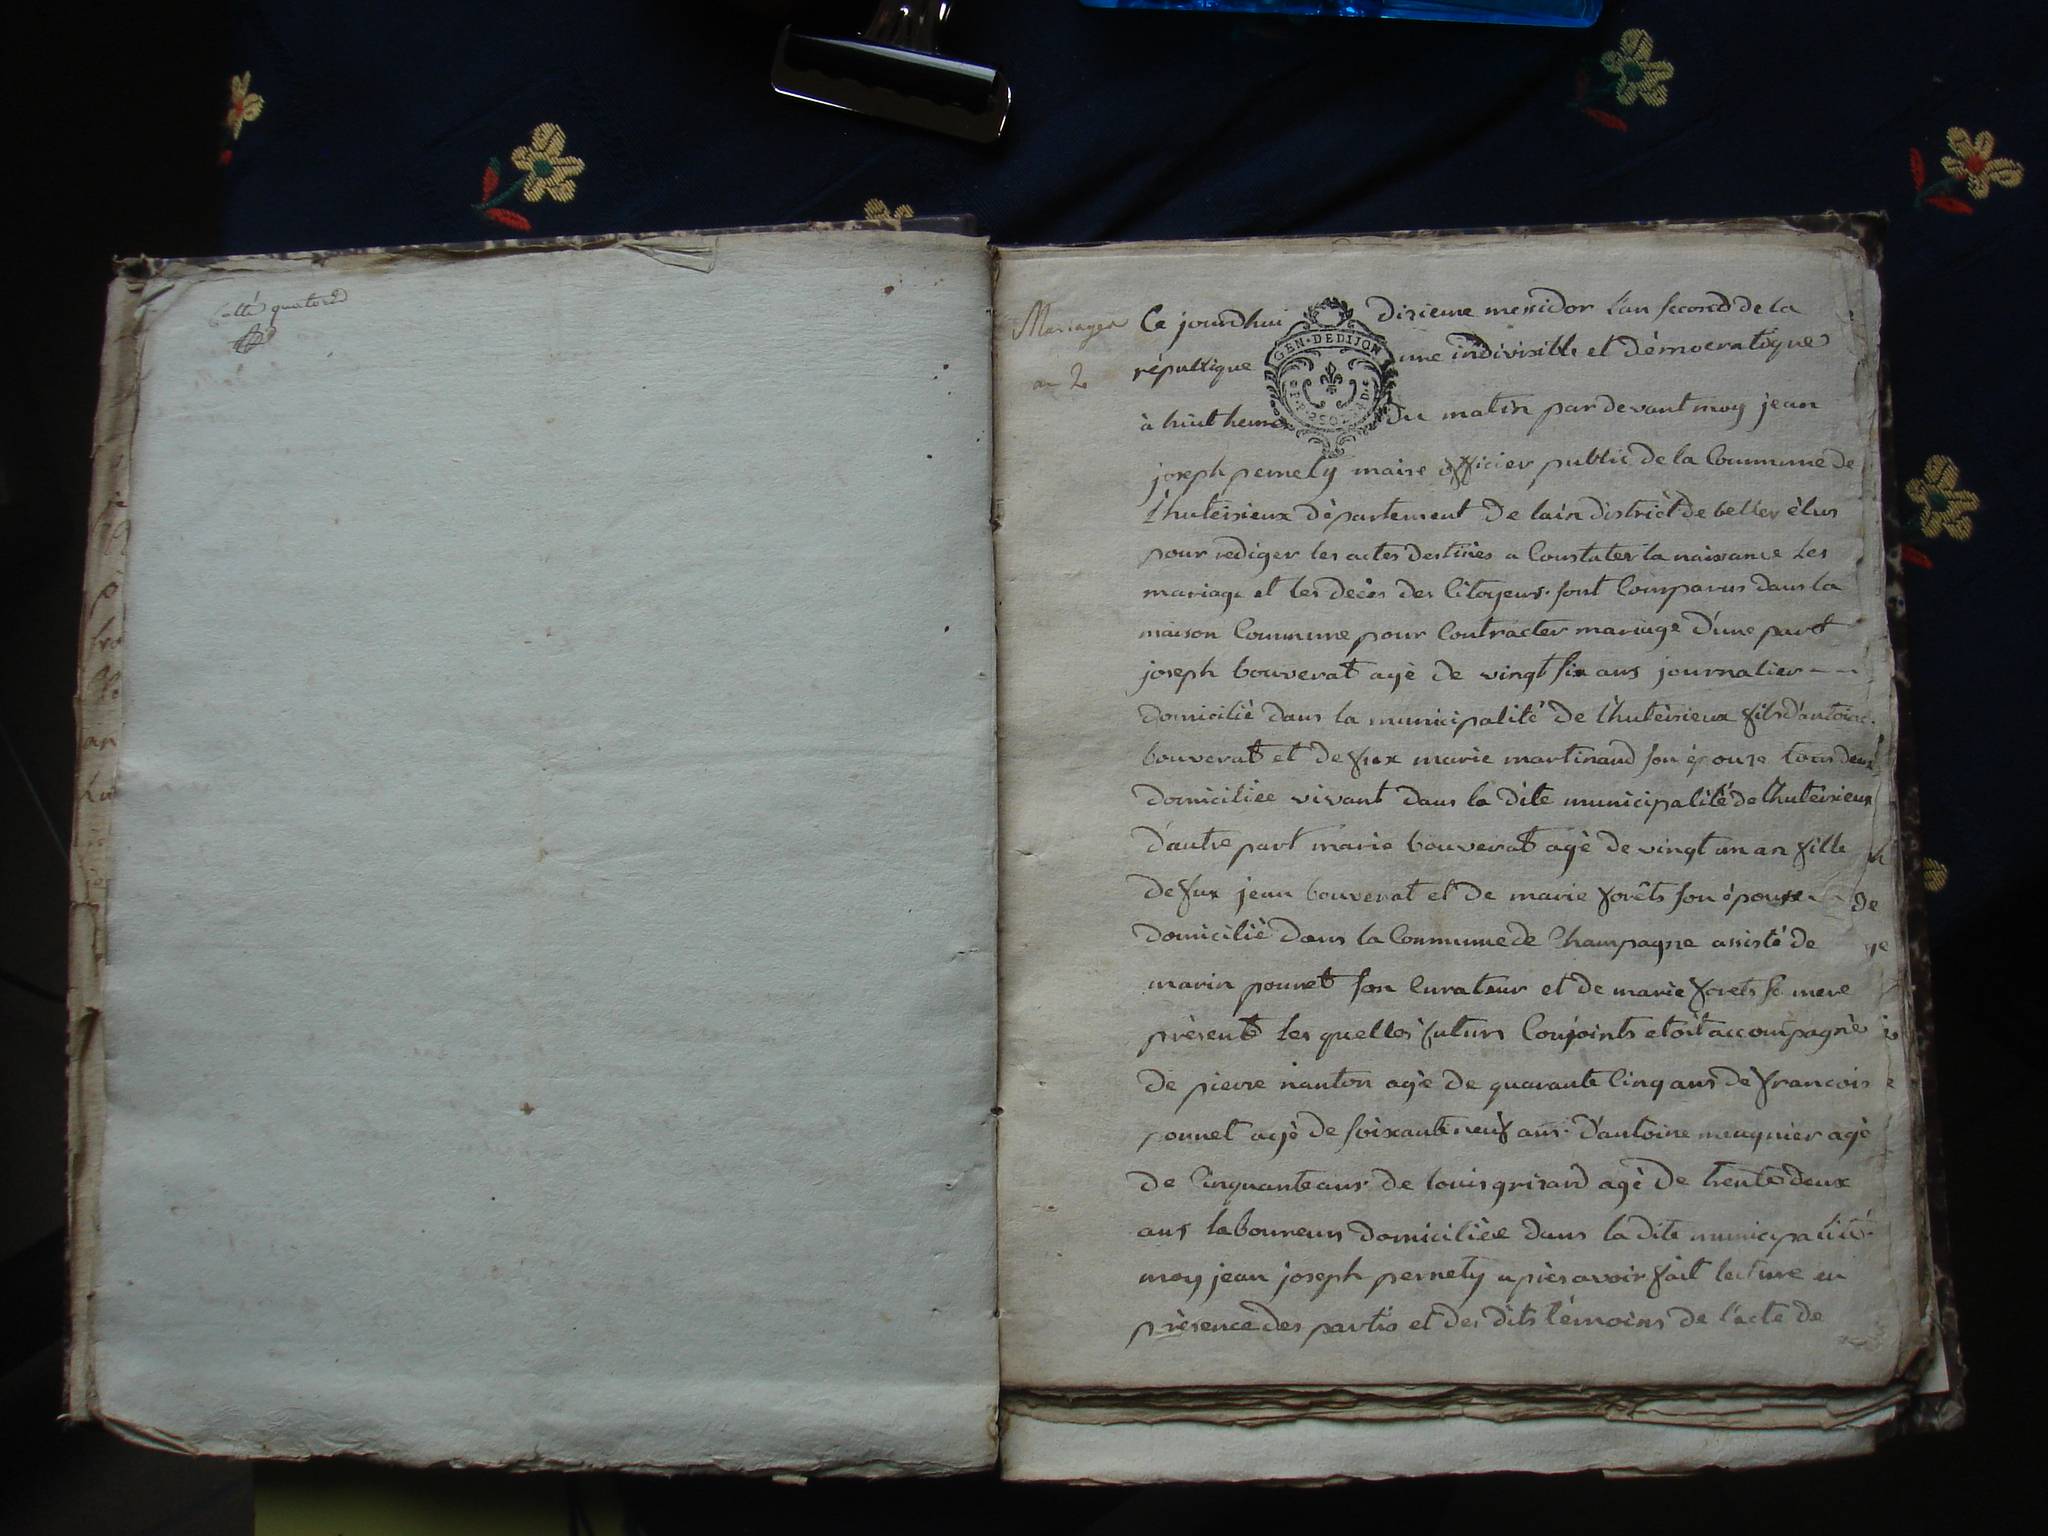 Cotté quatorze
Mariages
an 2
Ce jourdhui dixieme messidor l'an second de la
GEN·DEDIJON
république une indivisible et démocratique
à huit heures du matin pardevant moy jean
joseph pernety maire officier public de la Commune de
Lhuteisieux département de lain district de belley élus
pour rediger les actes destinés a Constater la naissance les
mariage et les decès des Citoyens sont Comparus dans la
maison Commune pour Contracter mariage d'une part
joseph bouverat agè de vingt six ans journalier --
domicilié dans la municipalité de Lhuteisieux fils d'antoine
bouverat et de feux marie martinaud son épouse tous deux
domiciliee vivant dans la dite municipalité de Lhuteisieux
d'autre part marie bouverat agè de vingt un an fille
de feux jean bouverat et de marie forêts son épouse
domicilié dans la Commune de Champagne assisté de
marin pounet son Curateur et de marie forets sa mere
présent les quelles futurs Conjoints etoit accompagné
de pierre nanton agè de quarante Cinq ans de francois
pounet agè de soixante neuf ans d'antoine maugnier agè
de Cinquante ans de louis grisard agè de trente deux
ans laboureurs domiciliée dans la dite municipalité
moy jean joseph pernety après avoir fait lecture en
présence des partis et des dits témoins de l'acte de